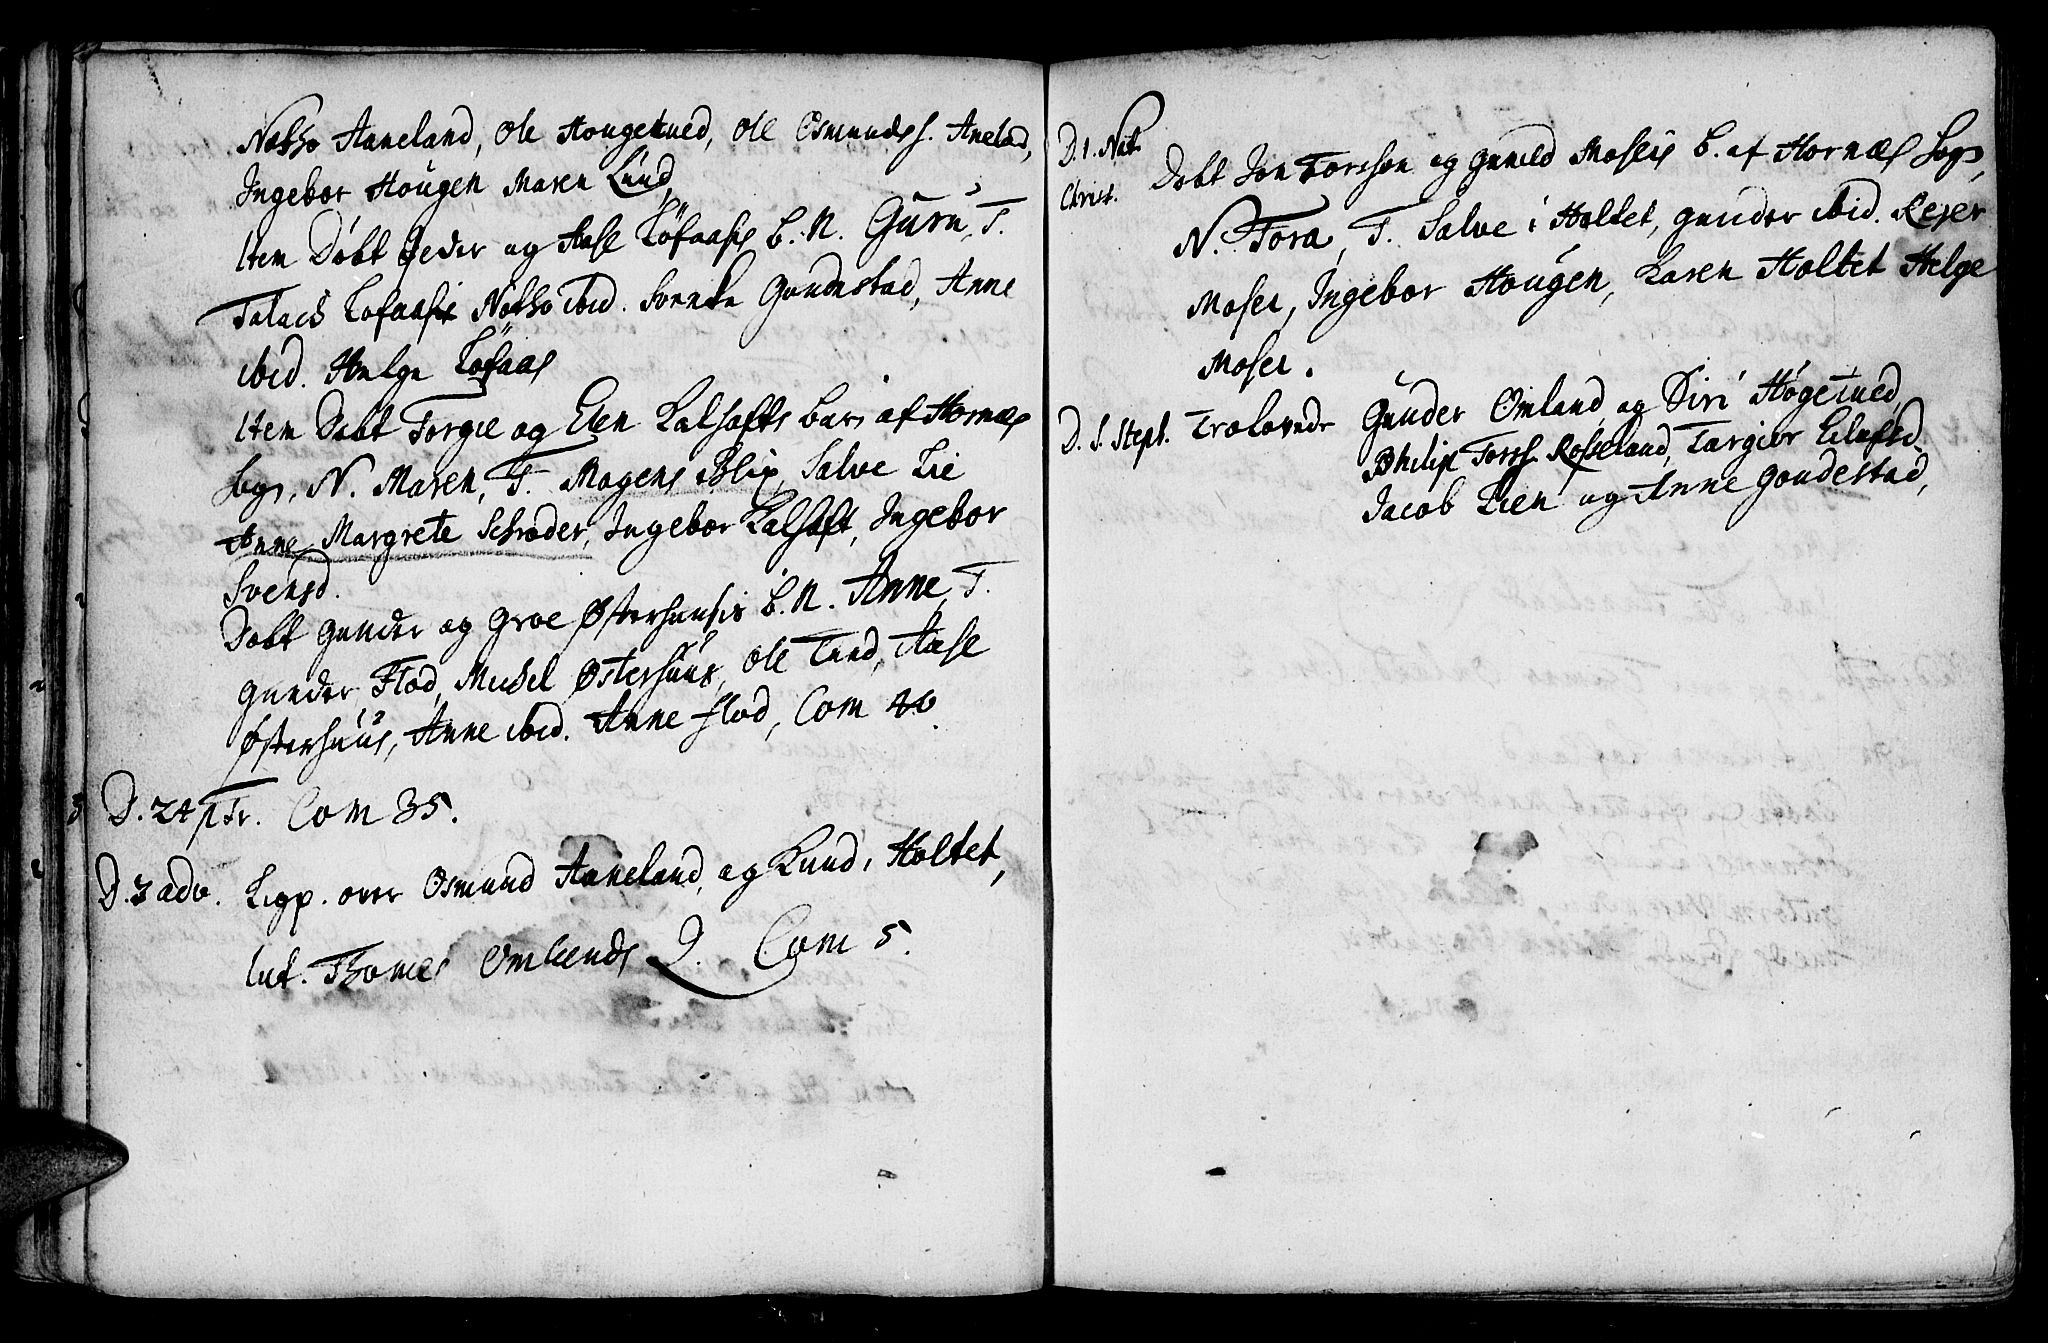 Notho Aaneland, Ole Hougetued, Ole Osmunds. Anelad,
Ingebor Hougen Maren Lund,
Item Døbt Peder og Aase Løfaasis B. N. Guru, T.
Talach Lofaasis Notho ibid. Svenke Gundestad, Anne
ibid. Helge Løfaas
Item Døbt Torgie og Elen Kalhafts barn af Hornæs
Sogn, N. Maren, T. Mogens Blix, Salve Lie
Anne Margrete Schrøder, Ingebor Kalhaft, Ingebor
Svensd.
Døbt Gunder og Groe Østerhuusis B. N. Anne, T.
Gunder Flod, Michel Østerhuus, Ole Lund, Aase
Østerhuus, Anne ibid. Anne Flod, Com 20.
D. 24 p Tr. Com 35.
D. 3 adv. Ligp. over Osmund Aaneland, og Knud i Holtet,
Int. Thomes Omlands D. Com 5.
D. 1. Nat. Christ. Døbt Jon Torssen og Gunild Moseis B. af Hornæs Sogn,
N. Tora, T. Salve i Holtet, Gunder ibid. Rejer
Mosei, Ingebor Hougen, Karen Holtet Helge
Mosei.
D. S. Steph. Trolovede Gunder Omland og Siri Høgetued,
Philip Torss. Rosseland, Targier Eilefsd.
Jacob Lien og Anne Goudestad,